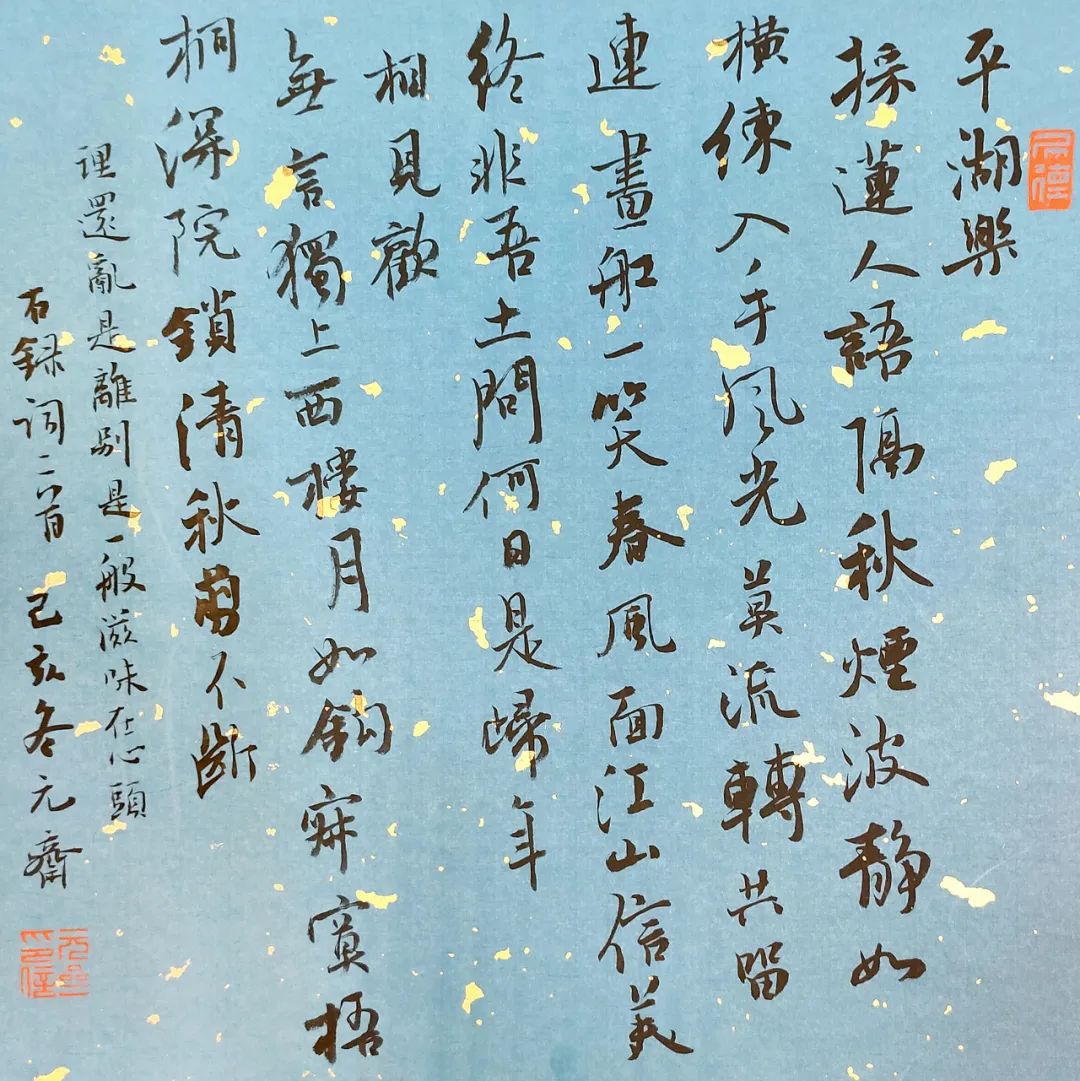 平湖樂
採蓮人語隔秋煙波靜如
橫練入手風光莫流轉共留
連畫船一笑春風面江山信美
終非吾土問何日是歸年
相見歡
無言獨上西樓月如鉤寂寞梧
桐深院鎖清秋剪不斷
理還亂是離别是一般滋味在心頭
右録詞二首 己亥冬元齋